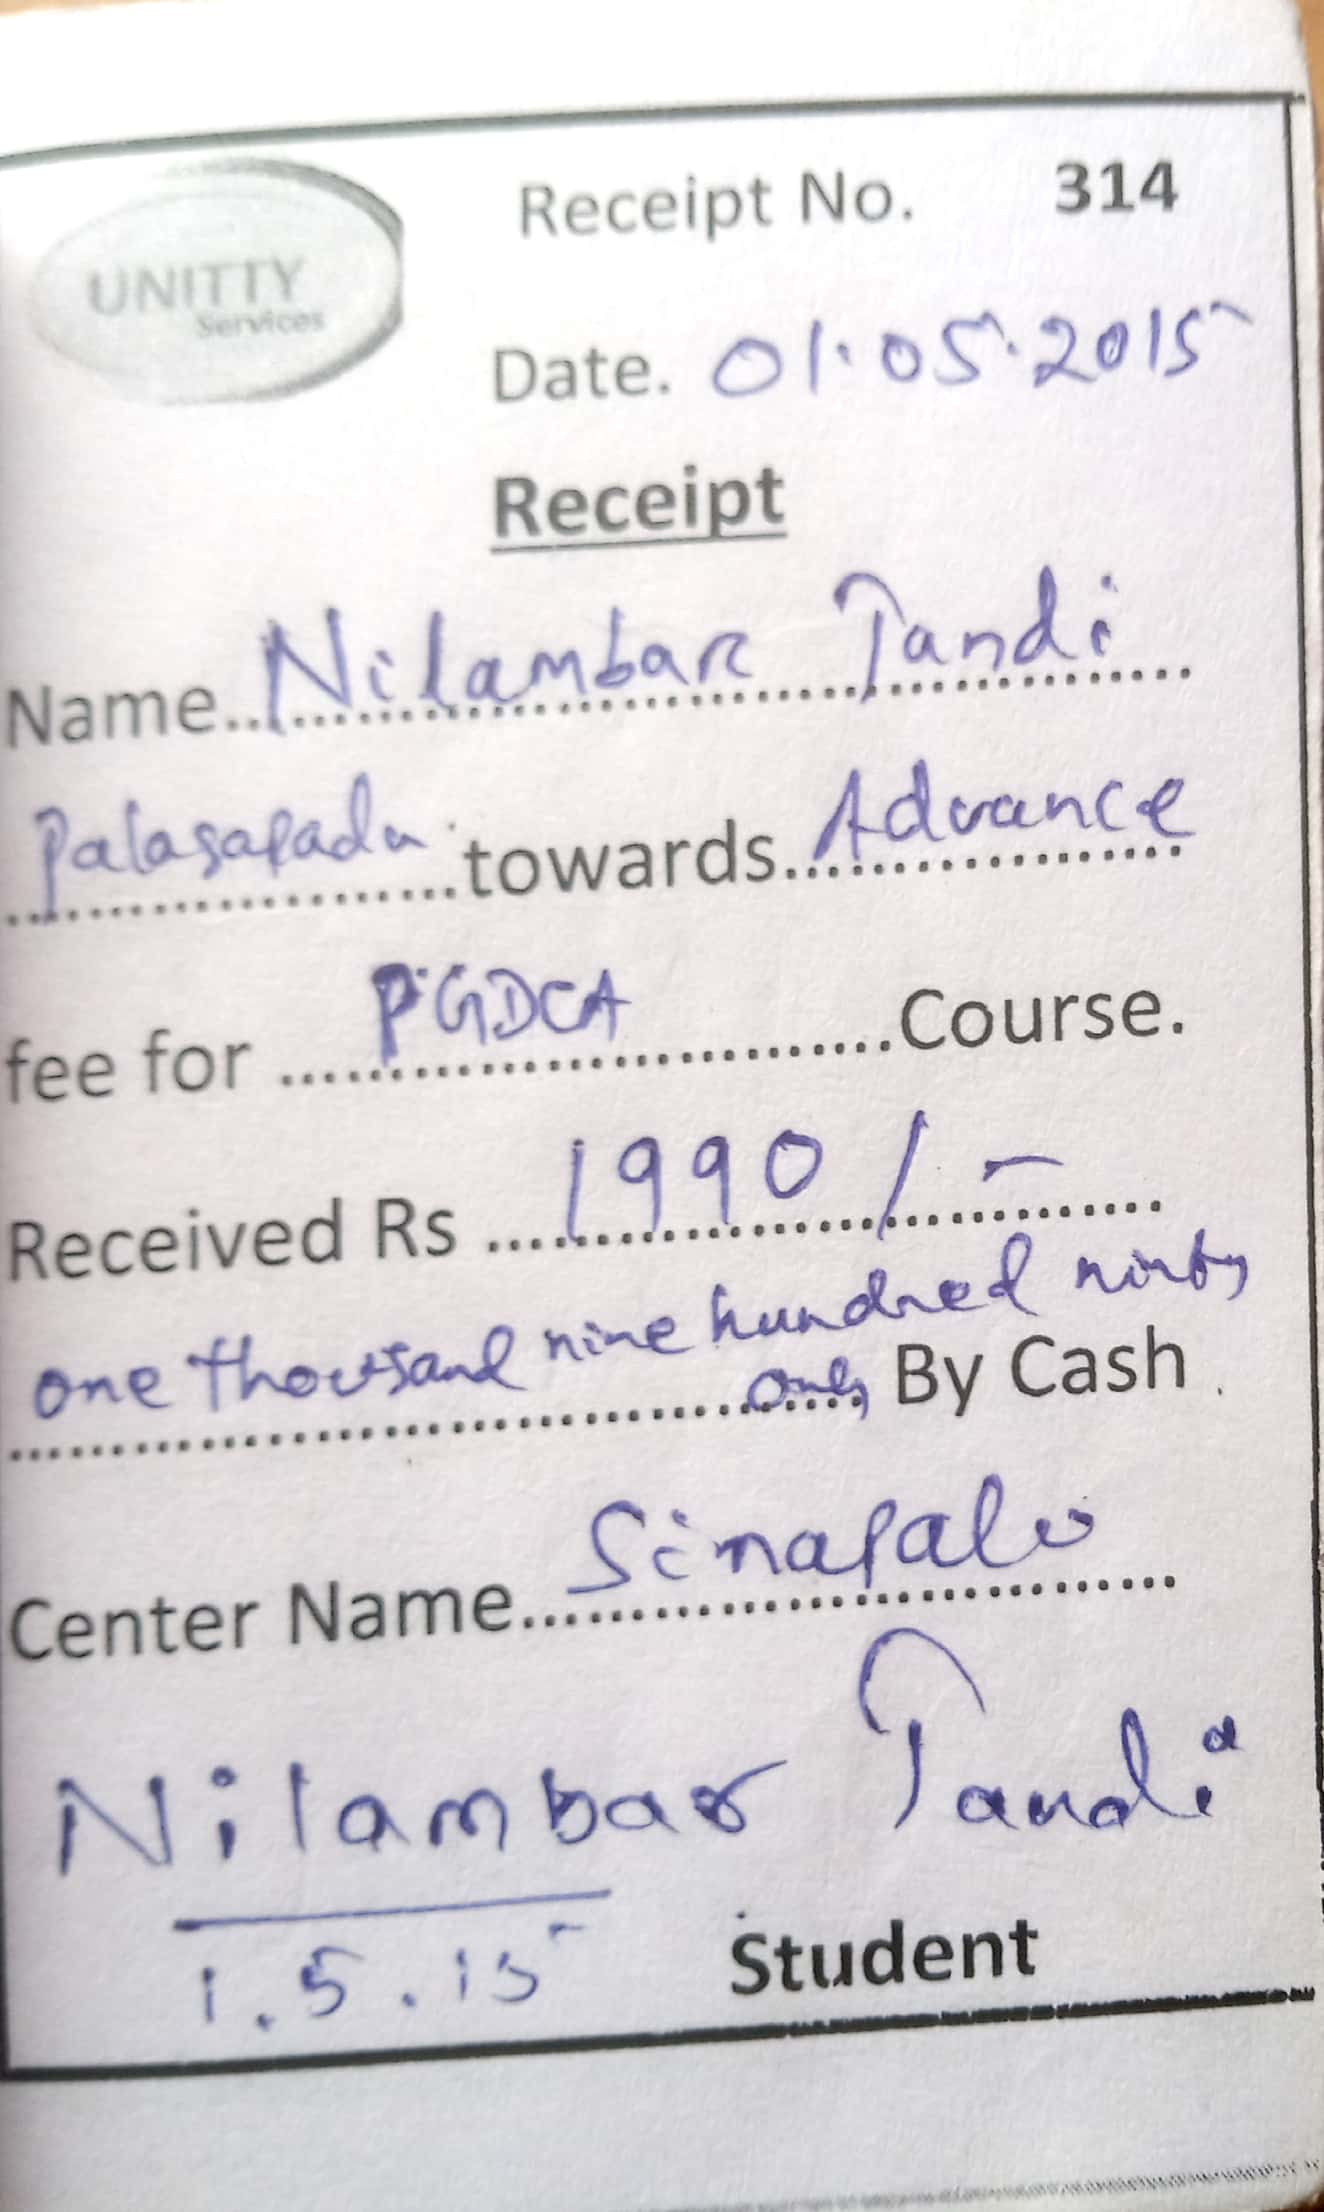 UNITTY
Services
Receipt No. 314
Date. 01.05.2015
Receipt
Name Nilambar Tandi
Palasapada towards Advance
fee for PGDCA Course.
Received Rs 1990/-
one thousand nine hundred ninty
only By Cash
Center Name Sinapala
Nilambar Tandi
1.5.15
Student